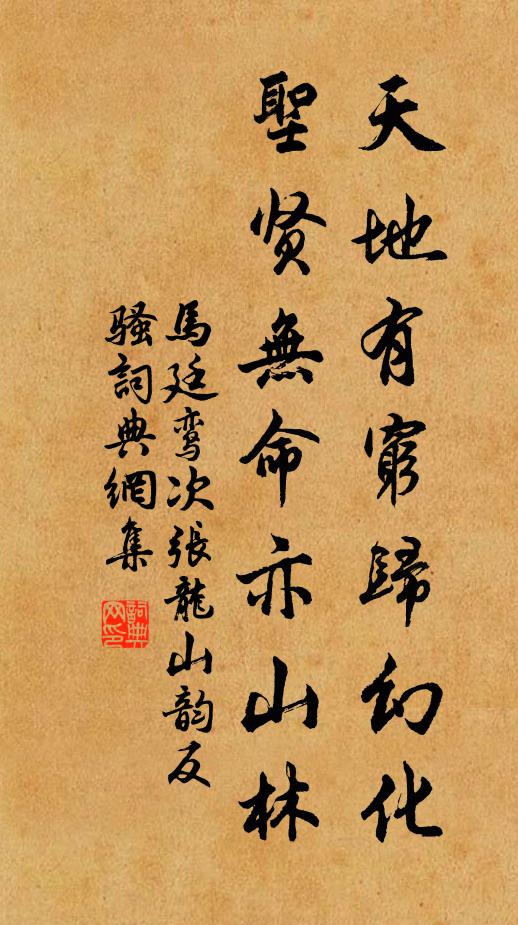 天地有窮歸幻化
聖贤無命亦山林
馬廷鸾次張龍山韵反
騷詞典網集
詞典网印